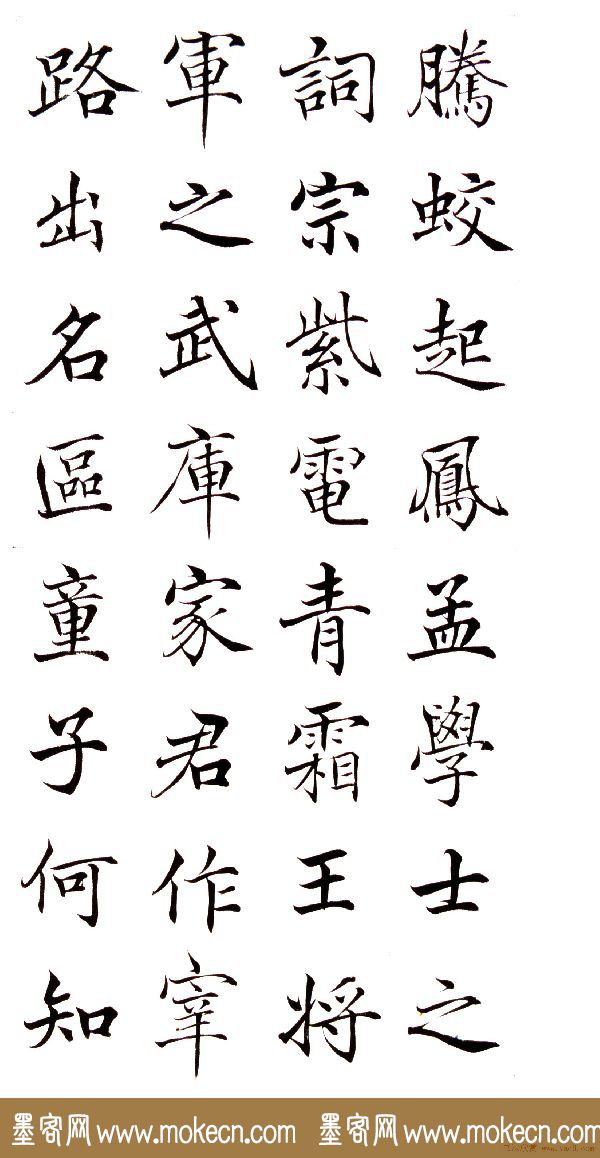 騰蛟起鳳孟學士之
詞宗紫電青霜王将
軍之武庫家君作宰
路出名區童子何知
墨客网 www.mokecn.com 墨客网 www.mokecn.com